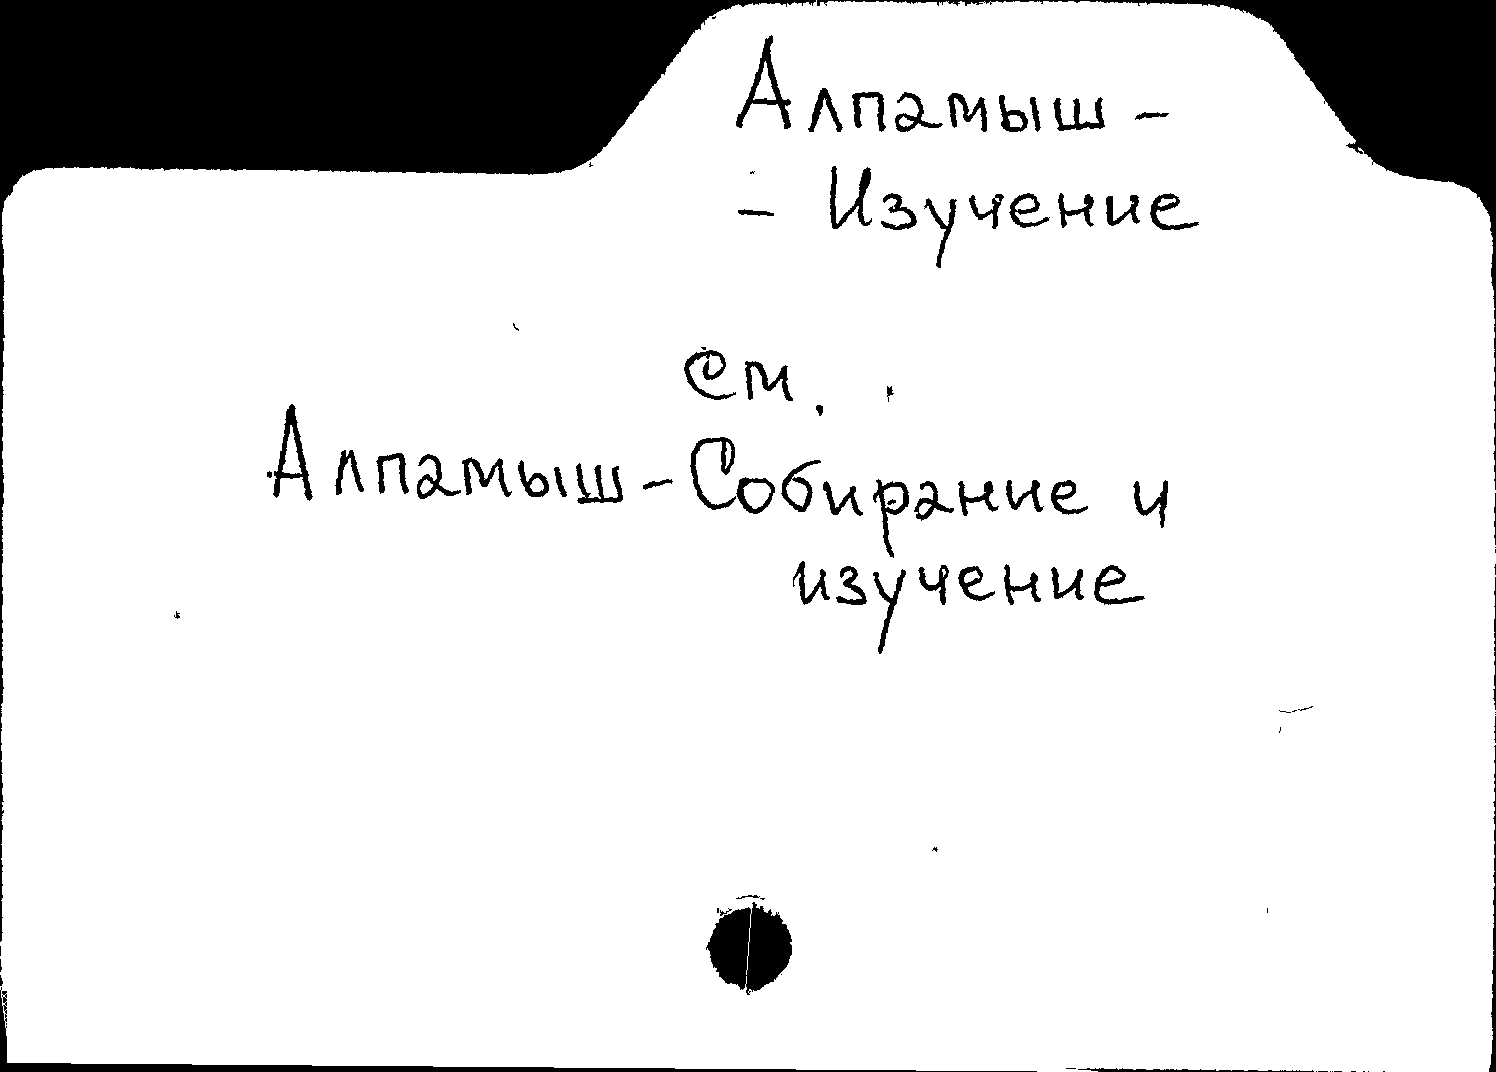 Алпамыш -
- Изучение
см.
Алпамыш - Собирание и
изучение